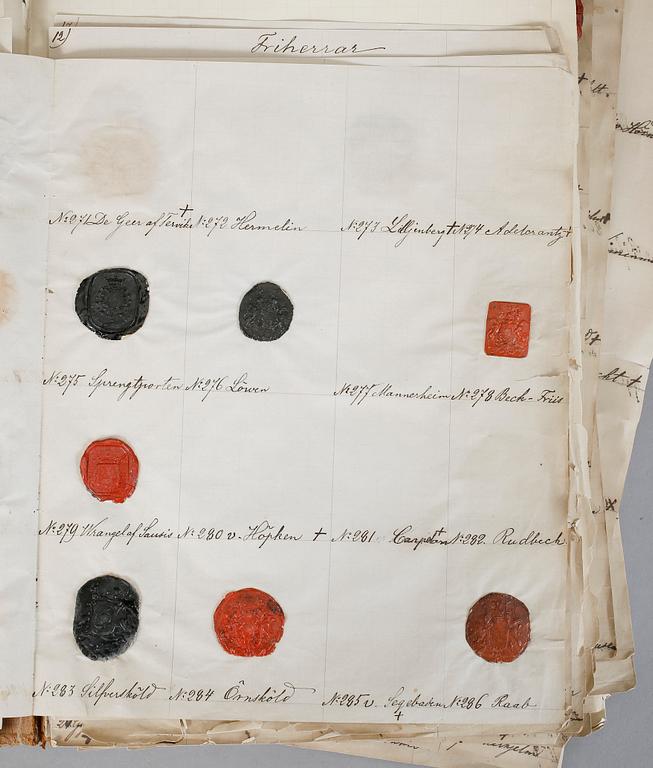 12)
Friherrar
№ 271 De Geer af Tervik † № 272 Hermelin № 273 Liljenberg † № 274 Adelcrantz †
№ 275 Sprengtporten № 276 Löwen № 277 Mannerheim № 278 Beck-Friis
№ 279 Wrangel af Sausis № 280 v. Höpken † № 281 Carpelan № 282. Rudbeck
№ 283 Silfversköld № 284 Örnsköld № 285 v. Segebaden † № 286 Raab